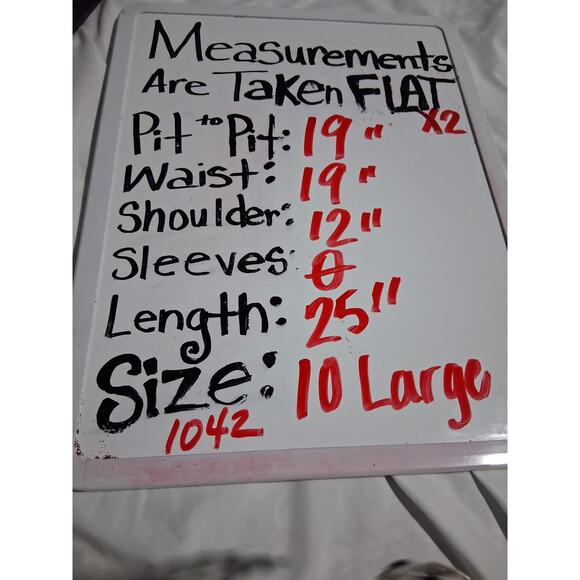 Measurements
Are Taken FLAT
x2
Pit to Pit: 19"
Waist: 19"
Shoulder: 12"
Sleeves: 0
Length: 25"
Size: 10 Large
1042